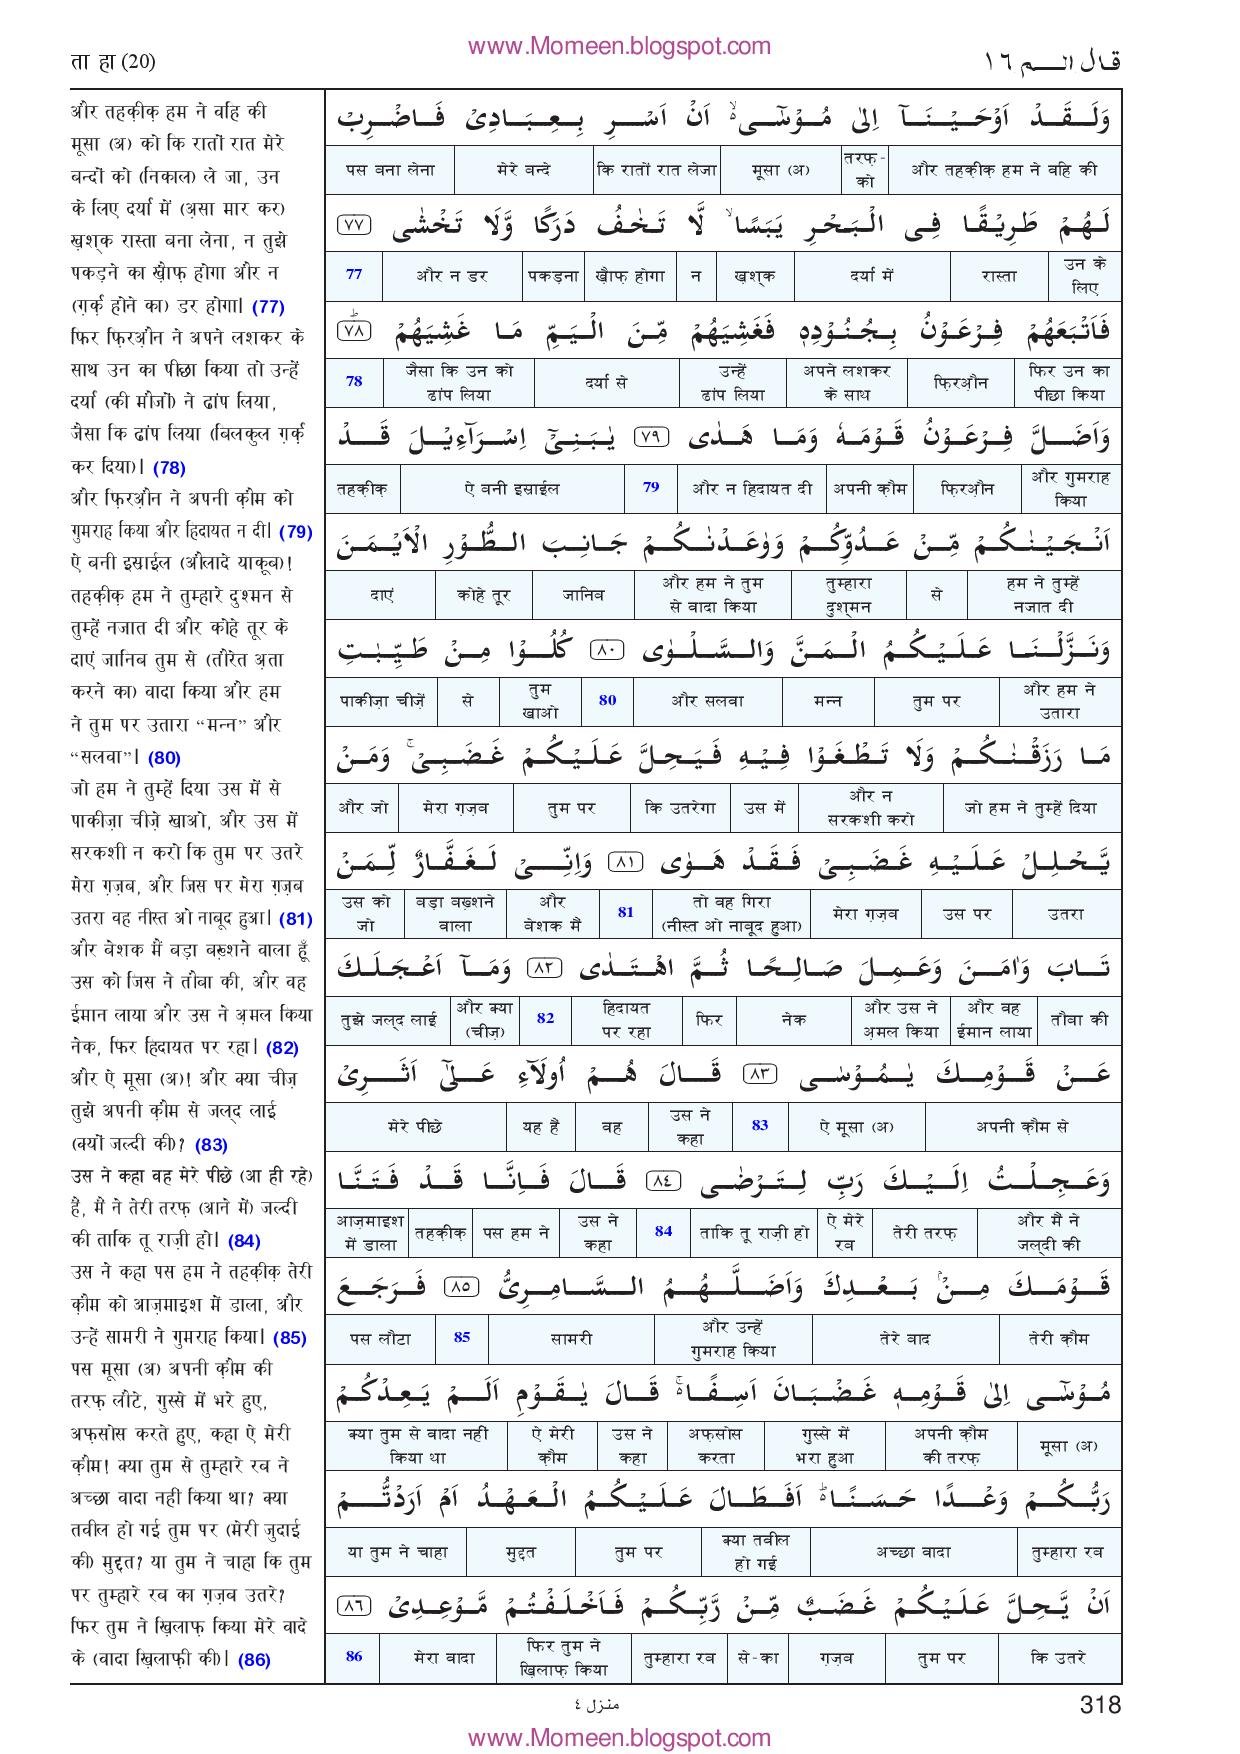 www.Momeen.blogspot.com
ता हा (20)
قال الم ١٦
और तहक़ीक़ हम ने वहि की
मूसा (अ) को कि रातों रात मेरे
बन्दों को (निकाल) ले जा, उन
के लिए दर्या में (अ़सा मार कर)
ख़ुश्क रास्ता बना लेना, न तुझे
पकड़ने का ख़ौफ़ होगा और न
(ग़र्क़ होने का) डर होगा। (77)
फिर फ़िरऔ़न ने अपने लशकर के
साथ उन का पीछा किया तो उन्हें
दर्या (की मौजों) ने ढांप लिया,
जैसा कि ढांप लिया (बिलकुल ग़र्क़
कर दिया)। (78)
और फ़िरऔ़न ने अपनी क़ौम को
गुमराह किया और हिदायत न दी। (79)
ऐ बनी इस्राईल (औलादे याकूब)!
तहक़ीक़ हम ने तुम्हारे दुश्मन से
तुम्हें नजात दी और कोहे तूर के
दाएं जानिब तुम से (तौरेत अ़ता
करने का) वादा किया और हम
ने तुम पर उतारा “मन्न” और
“सलवा”। (80)
जो हम ने तुम्हें दिया उस में से
पाकीज़ा चीज़े खाओ, और उस में
सरकशी न करो कि तुम पर उतरे
मेरा ग़ज़ब, और जिस पर मेरा ग़ज़ब
उतरा वह नीस्त ओ नाबूद हुआ। (81)
और बेशक मैं बड़ा बख़्शने वाला हूँ
उस को जिस ने तौबा की, और वह
ईमान लाया और उस ने अ़मल किया
नेक, फिर हिदायत पर रहा। (82)
और ऐ मूसा (अ)! और क्या चीज़
तुझे अपनी क़ौम से जल्द लाई
(क्यों जल्दी की)? (83)
उस ने कहा वह मेरे पीछे (आ ही रहे)
हैं, मैं ने तेरी तरफ़ (आने में) जल्दी
की ताकि तू राज़ी हो। (84)
उस ने कहा पस हम ने तहक़ीक़ तेरी
क़ौम को आज़माइश में डाला, और
उन्हें सामरी ने गुमराह किया। (85)
पस मूसा (अ) अपनी क़ौम की
तरफ़ लौटे, गुस्से में भरे हुए,
अफ़सोस करते हुए, कहा ऐ मेरी
क़ौम! क्या तुम से तुम्हारे रब ने
अच्छा वादा नहीं किया था? क्या
तवील हो गई तुम पर (मेरी जुदाई
की) मुद्दत? या तुम ने चाहा कि तुम
पर तुम्हारे रब का ग़ज़ब उतरे?
फिर तुम ने ख़िलाफ़ किया मेरे वादे
के (वादा ख़िलाफ़ी की)। (86)
وَلَقَدْ اَوْحَيْنَآ اِلٰى مُوْسٰٓى ۙ اَنْ اَسْرِ بِعِبَادِىْ فَاضْرِبْ
पस बना लेना | मेरे बन्दे | कि रातों रात लेजा | मूसा (अ) | तरफ़-को | और तहक़ीक़ हम ने वहि की
لَهُمْ طَرِيْقًا فِى الْبَحْرِ يَبَسًا ۙ لَّا تَخٰفُ دَرَكًا وَّلَا تَخْشٰى ٧٧
77 | और न डर | पकड़ना | ख़ौफ़ होगा | न | ख़ुश्क | दर्या में | रास्ता | उन के लिए
فَاَتْبَعَهُمْ فِرْعَوْنُ بِجُنُوْدِهٖ فَغَشِيَهُمْ مِّنَ الْيَمِّ مَا غَشِيَهُمْ ؕ ٧٨
78 | जैसा कि उन को ढांप लिया | दर्या से | उन्हें ढांप लिया | अपने लशकर के साथ | फ़िरऔ़न | फिर उन का पीछा किया
وَاَضَلَّ فِرْعَوْنُ قَوْمَهٗ وَمَا هَدٰى ٧٩ يٰبَنِىْٓ اِسْرَآءِيْلَ قَدْ
तहक़ीक़ | ऐ बनी इस्राईल | 79 | और न हिदायत दी | अपनी क़ौम | फ़िरऔ़न | और गुमराह किया
اَنْجَيْنٰكُمْ مِّنْ عَدُوِّكُمْ وَوٰعَدْنٰكُمْ جَانِبَ الطُّوْرِ الْاَيْمَنَ
दाएं | कोहे तूर | जानिब | और हम ने तुम से वादा किया | तुम्हारा दुश्मन | से | हम ने तुम्हें नजात दी
وَنَزَّلْنَا عَلَيْكُمُ الْمَنَّ وَالسَّلْوٰى ٨٠ كُلُوْا مِنْ طَيِّبٰتِ
पाकीज़ा चीज़ें | से | तुम खाओ | 80 | और सलवा | मन्न | तुम पर | और हम ने उतारा
مَا رَزَقْنٰكُمْ وَلَا تَطْغَوْا فِيْهِ فَيَحِلَّ عَلَيْكُمْ غَضَبِىْ ۚ وَمَنْ
और जो | मेरा ग़ज़ब | तुम पर | कि उतरेगा | उस में | और न सरकशी करो | जो हम ने तुम्हें दिया
يَّحْلِلْ عَلَيْهِ غَضَبِىْ فَقَدْ هَوٰى ٨١ وَاِنِّىْ لَغَفَّارٌ لِّمَنْ
उस को जो | बड़ा बख़्शने वाला | और बेशक मैं | 81 | तो वह गिरा (नीस्त ओ नाबूद हुआ) | मेरा ग़ज़ब | उस पर | उतरा
تَابَ وَاٰمَنَ وَعَمِلَ صَالِحًا ثُمَّ اهْتَدٰى ٨٢ وَمَآ اَعْجَلَكَ
तुझे जल्द लाई | और क्या (चीज़) | 82 | हिदायत पर रहा | फिर | नेक | और उस ने अ़मल किया | और वह ईमान लाया | तौबा की
عَنْ قَوْمِكَ يٰمُوْسٰى ٨٣ قَالَ هُمْ اُولَآءِ عَلٰٓى اَثَرِىْ
मेरे पीछे | यह हैं | वह | उस ने कहा | 83 | ऐ मूसा (अ) | अपनी क़ौम से
وَعَجِلْتُ اِلَيْكَ رَبِّ لِتَرْضٰى ٨٤ قَالَ فَاِنَّا قَدْ فَتَنَّا
आज़माइश में डाला | तहक़ीक़ | पस हम ने | उस ने कहा | 84 | ताकि तू राज़ी हो | ऐ मेरे रब | तेरी तरफ़ | और मैं ने जल्दी की
قَوْمَكَ مِنْۢ بَعْدِكَ وَاَضَلَّهُمُ السَّامِرِىُّ ٨٥ فَرَجَعَ
पस लौटा | 85 | सामरी | और उन्हें गुमराह किया | तेरे बाद | तेरी क़ौम
مُوْسٰٓى اِلٰى قَوْمِهٖ غَضْبَانَ اَسِفًا ۚ قَالَ يٰقَوْمِ اَلَمْ يَعِدْكُمْ
क्या तुम से वादा नहीं किया था | ऐ मेरी क़ौम | उस ने कहा | अफ़सोस करता | गुस्से में भरा हुआ | अपनी क़ौम की तरफ़ | मूसा (अ)
رَبُّكُمْ وَعْدًا حَسَنًا ؕ اَفَطَالَ عَلَيْكُمُ الْعَهْدُ اَمْ اَرَدْتُّمْ
या तुम ने चाहा | मुद्दत | तुम पर | क्या तवील हो गई | अच्छा वादा | तुम्हारा रब
اَنْ يَّحِلَّ عَلَيْكُمْ غَضَبٌ مِّنْ رَّبِّكُمْ فَاَخْلَفْتُمْ مَّوْعِدِىْ ٨٦
86 | मेरा वादा | फिर तुम ने ख़िलाफ़ किया | तुम्हारा रब | से-का | ग़ज़ब | तुम पर | कि उतरे
منزل ٤
318
www.Momeen.blogspot.com